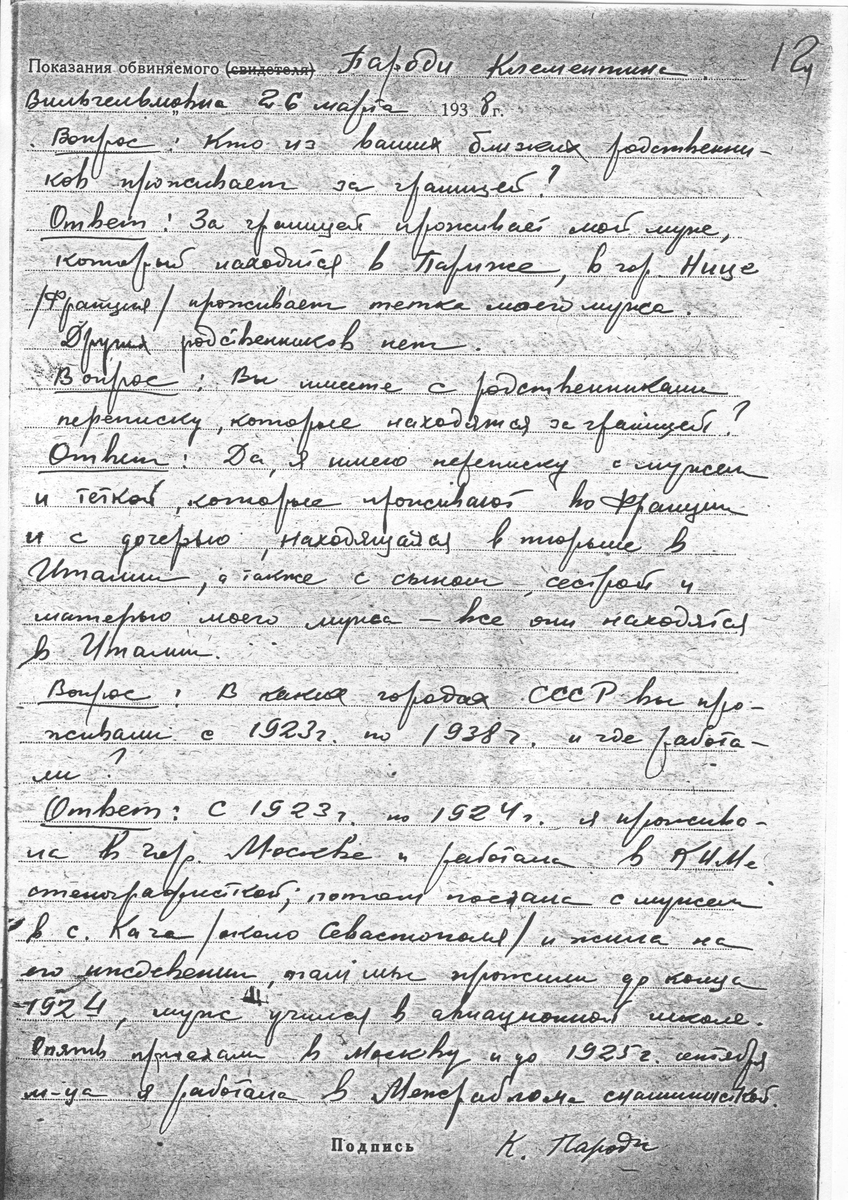 12
Показания обвиняемого (свидетеля) Пароди Клементина
Вильгельмовна 26 марта 1938 г.
Вопрос: Кто из ваших близких родственни-
ков проживает за границей?
Ответ: За границей проживает мой муж,
который находится в Париже, в гор. Нице
/Франция/ проживает тетка моего мужа.
Других родственников нет.
Вопрос: Вы имеете с родственниками
переписку, которые находятся за границей?
Ответ: Да, я имею переписку с мужем
и теткой, которые проживают во Франции
и с дочерью, находящаяся в тюрьме в
Италии, а также с сыном, сестрой и
матерью моего мужа – все они находятся
в Италии.
Вопрос: В каких городах СССР вы про-
живали с 1923 г. по 1938 г. и где работа-
ли?
Ответ: С 1923 г. по 1924 г. я прожива-
ла в гор. Москве и работала в КИМе
стенографисткой; потом послана с мужем
в с. Кача /около Севастополя/ и жила на
его иждивении, там мы прожили до конца
1924, муж учился в авиационной школе.
Опять приехали в Москву и до 1925 г. сентября
м-ца я работала в Межрабпоме машинисткой.
Подпись К. Пароди